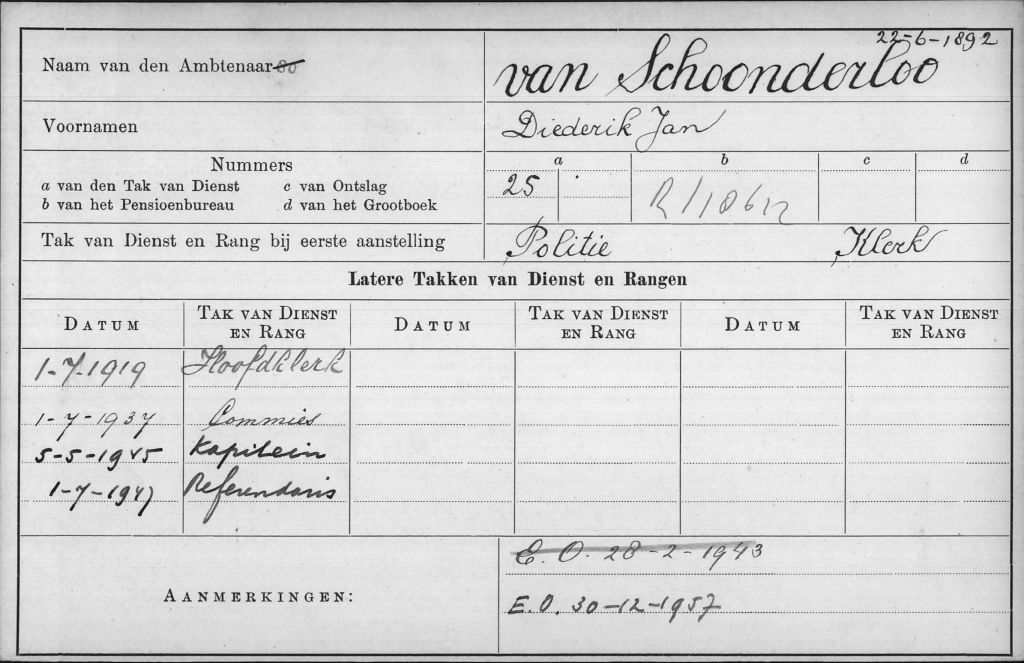 22-6-1892
Naam van den Ambtenaar van Schoonderloo
Voornamen Diederik Jan
Nummers a b c d
a van den Tak van Dienst c van Ontslag 25
b van het Pensioenbureau d van het Grootboek R/10612
Tak van Dienst en Rang bij eerste aanstelling Politie Klerk
Latere Takken van Dienst en Rangen
DATUM TAK VAN DIENST EN RANG DATUM TAK VAN DIENST EN RANG DATUM TAK VAN DIENST EN RANG
1-7-1919 Hoofdklerk
1-7-1937 Commies
5-5-1945 Kapitein
1-7-1947 Referendaris
E.O. 28-2-1943
AANMERKINGEN:
E.O. 30-12-1957